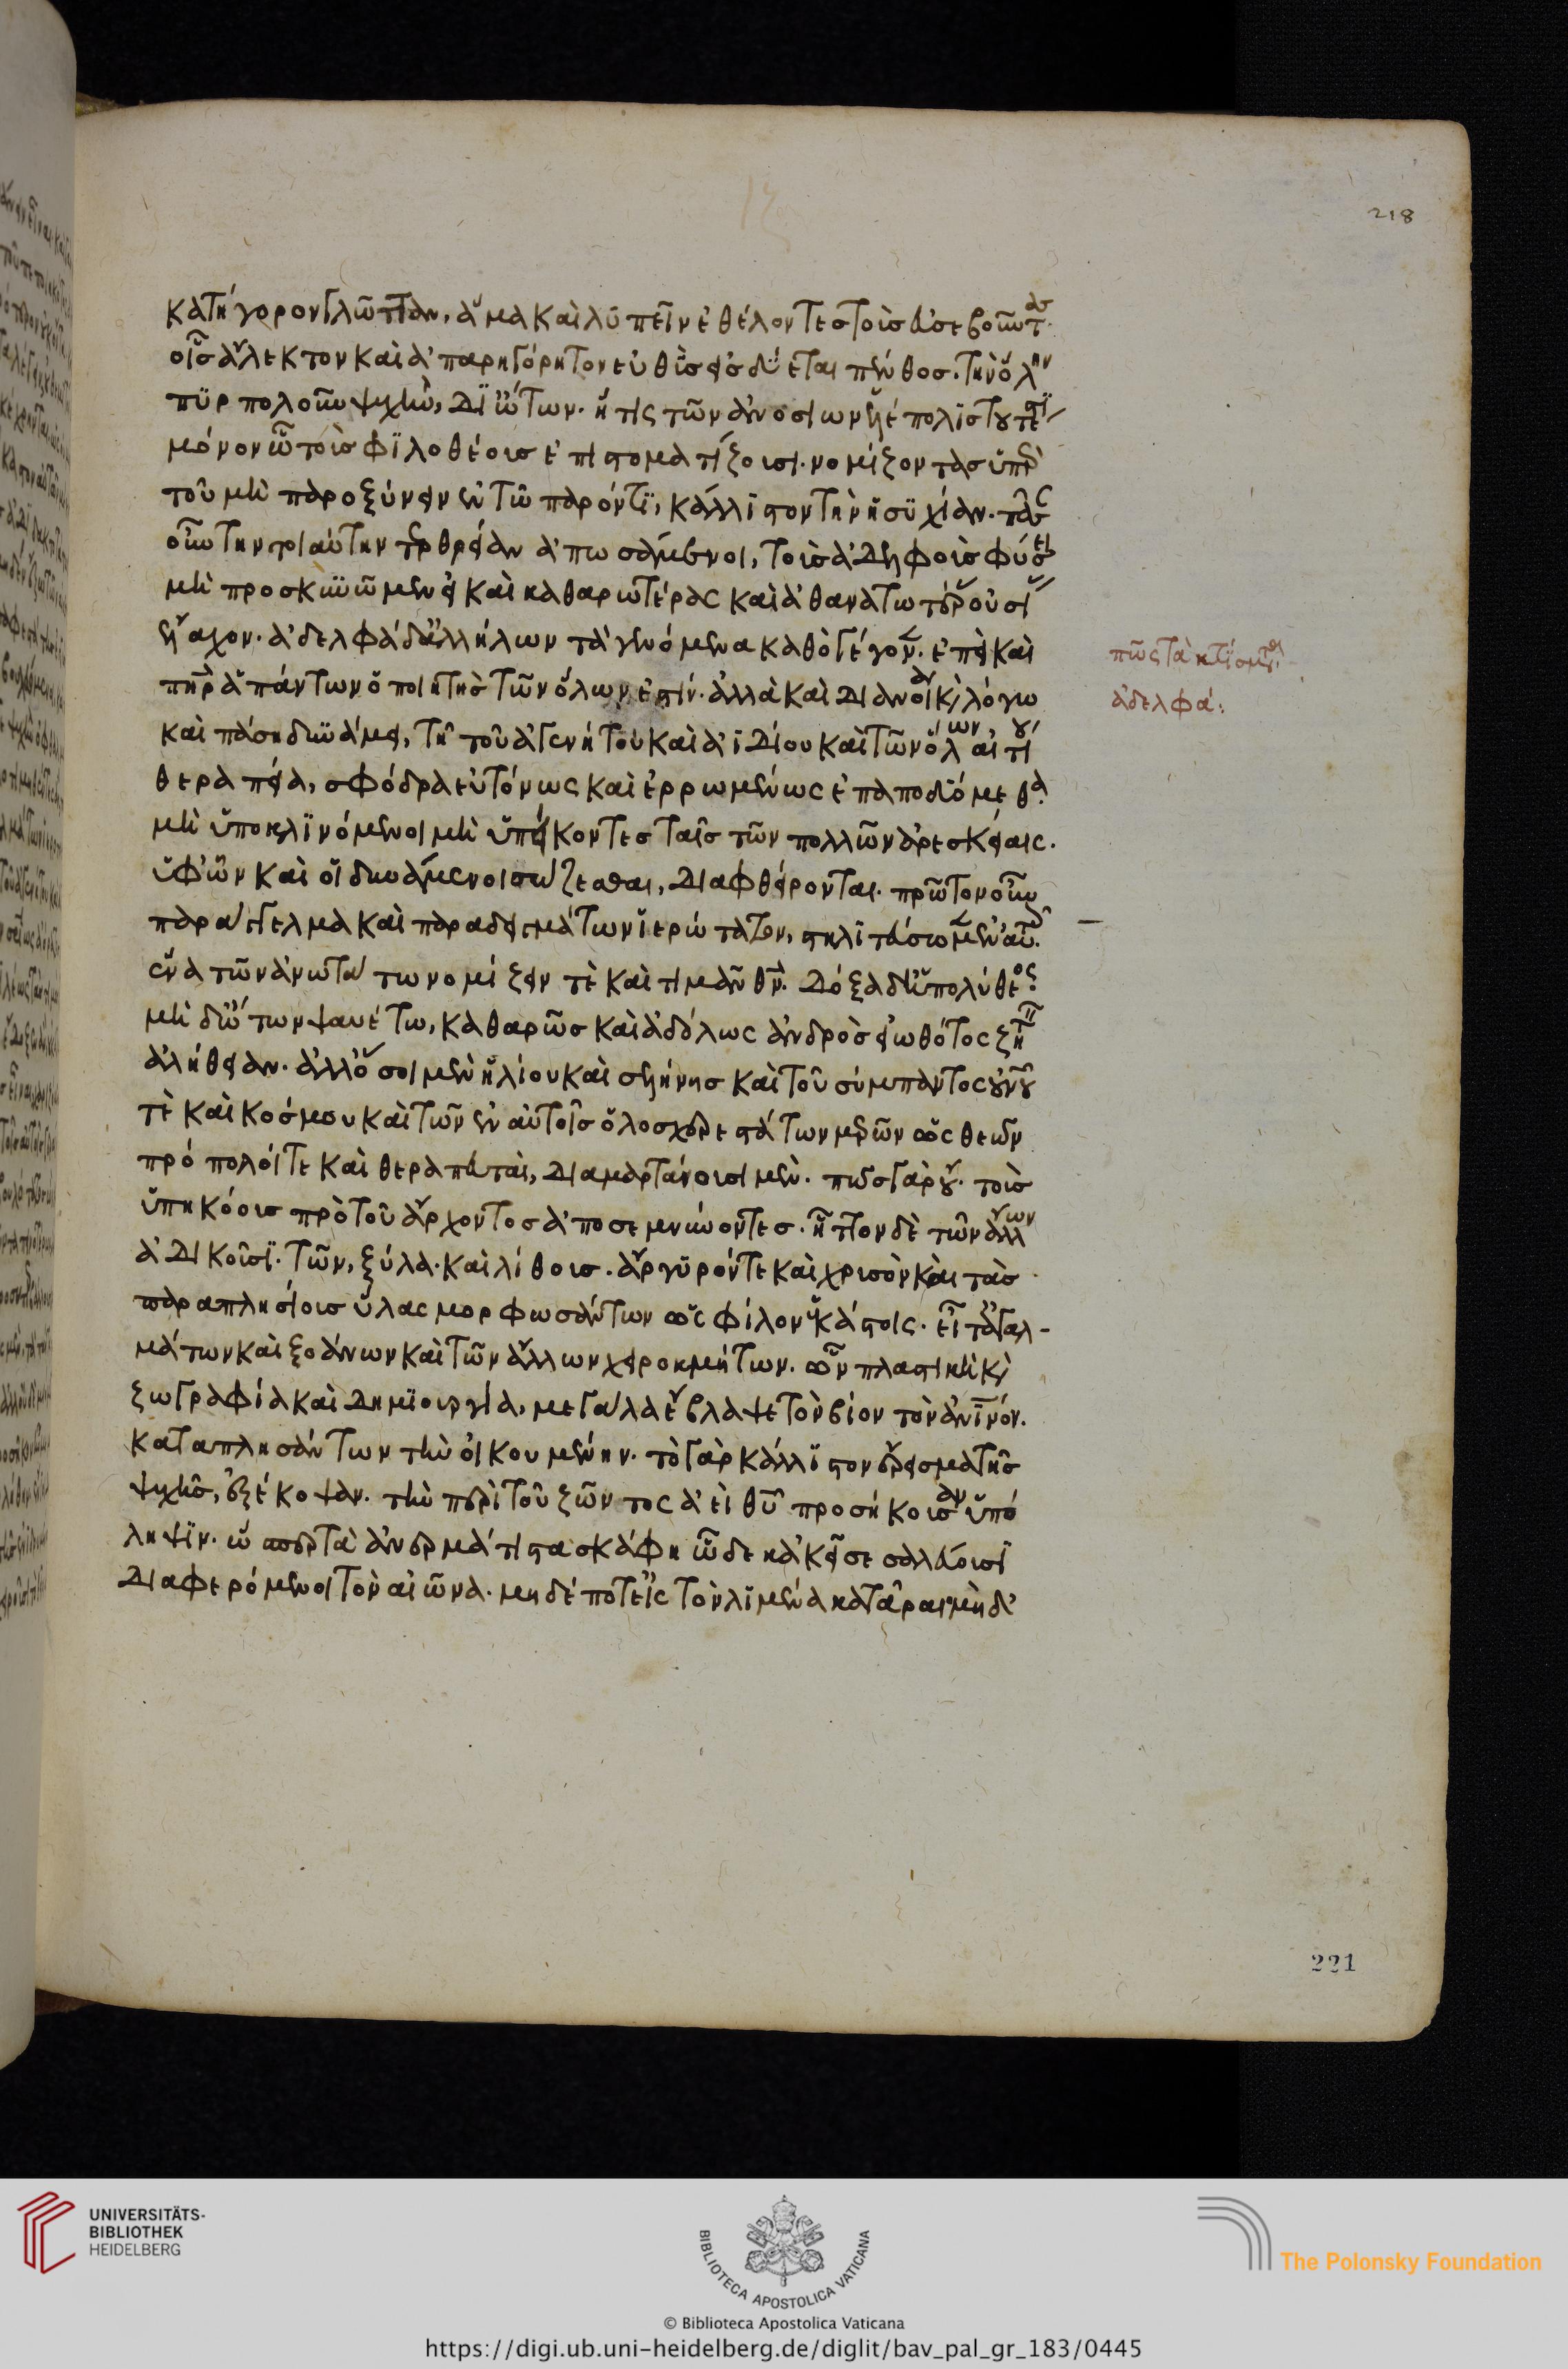 κατήγορον γλῶτταν, ἅμα καὶ λυπεῖν ἐθέλοντες τοὺς εὐσεβοῦντας.
οἷς ἄλεκτον καὶ ἀπαρηγόρητον εὐθὺς εἰσδύεται πένθος. τὴν ὅλην
πυρπολοῦν ψυχὴν, δϊ ὤτων. ἥτις τῶν ἀνοσίων
μόνον τοὺς φϊλοθέους νομίζοντας ὑπὲρ
τοῦ μὴ παροξύνειν ἐν τῷ παρόντϊ, κάλλϊστον τὴν ἡσυχίαν. πᾶσαν
οὖν τὴν τοιαύτην τερθρείαν ἀπωσάμενοι, τοὺς ἀδελφοὺς φύσει
μὴ προσκυνῶμεν εἰ καὶ καθαρωτέρας καὶ ἀθανατωτέρας οὐσίας
ἔλαχον. ἀδελφὰ δ' ἀλλήλων τὰ γενόμενα καθὸ γέγονεν. ἐπεὶ καὶ
πατὴρ ἁπάντων ὁ ποιητὴς τῶν ὅλων ἐστίν. ἀλλὰ καὶ διανοίᾳ καὶ λόγω
καὶ πάσῃ δυνάμει, τῇ τοῦ ἀγενήτου καὶ ἀϊδίου καὶ τῶν ὅλων αἰτίου
θεραπείᾳ, σφόδρα εὐτόνως καὶ ἐρρωμένως ἐπαποδυόμεθα.
μὴ ὑποκλϊνόμενοι μὴ ὑπείκοντες ταῖς τῶν πολλῶν ἀρεσκείαις.
ὑφ' ὧν καὶ οἱ δυνάμενοι σώζεσθαι, διαφθείρονται. πρῶτον οὖν
παράγγελμα καὶ παραδειγμάτων ἱερώτατον, στηλϊτεύσωμεν
ἕνα τῶν ἀνωτάτω νομίζειν τὲ καὶ τιμᾶν θεόν. δόξα δ' ἡ πολύθεος
μὴ δ' ὤτων ψαυέτω, καθαρῶς καὶ ἀδόλως ἀνδρὸς εἰωθότος ζητεῖν
ἀλήθειαν. ἀλλ' ὅσοι μὲν ἡλίου καὶ σελήνης καὶ τοῦ σύμπαντος οὐρανοῦ
τὲ καὶ κόσμου καὶ τῶν ἐν αὐτοῖς ὁλοσχερεστάτων μερῶν ὡς θεῶν
πρόπολοί τε καὶ θεραπευταὶ, διαμαρτάνουσι μὲν. πῶς γὰρ οὔ. τοὺς
ὑπηκόους πρὸ τοῦ ἄρχοντος ἀποσεμνύνοντες. ἧττον δὲ τῶν ἄλλων
ἀδικοῦσϊ. τῶν, ξύλα. καὶ λίθους. ἄργυρόν τε καὶ χρυσὸν καὶ τὰς
παραπλησίους ὕλας μορφωσάντων ὡς φίλον ἑκάστοις. εἶτ' ἀγαλ-
μάτων καὶ ξοάνων καὶ τῶν ἄλλων χειροκμήτων. ὧν πλαστικὴ καὶ
ζωγραφία καὶ δημιουργία, μεγάλα ἔβλαψε τὸν βίον τὸν ἀνθρώπινον.
καταπλησάντων τὴν οἰκουμένην. τὸ γὰρ κάλλϊστον ἔρεισμα τῆς
ψυχῆς, ἐξέκοψαν. τὴν περὶ τοῦ ζῶντος ἀεὶ θεοῦ προσήκουσαν ὑπό
ληψϊν. ὥσπερ τὰ ἀνερμάτιστα σκάφη ὧδε κἀκεῖσε σαλεύουσϊ
διαφερόμενοι τὸν αἰῶνα. μηδέποτ' εἰς τὸν λϊμένα κατᾶραι μὴ δ'
πῶς τὰ κτίσματα
ἀδελφά:
218
221
UNIVERSITÄTS-
BIBLIOTHEK
HEIDELBERG
BIBLIOTECA APOSTOLICA VATICANA
The Polonsky Foundation
© Biblioteca Apostolica Vaticana
https://digi.ub.uni-heidelberg.de/diglit/bav_pal_gr_183/0445